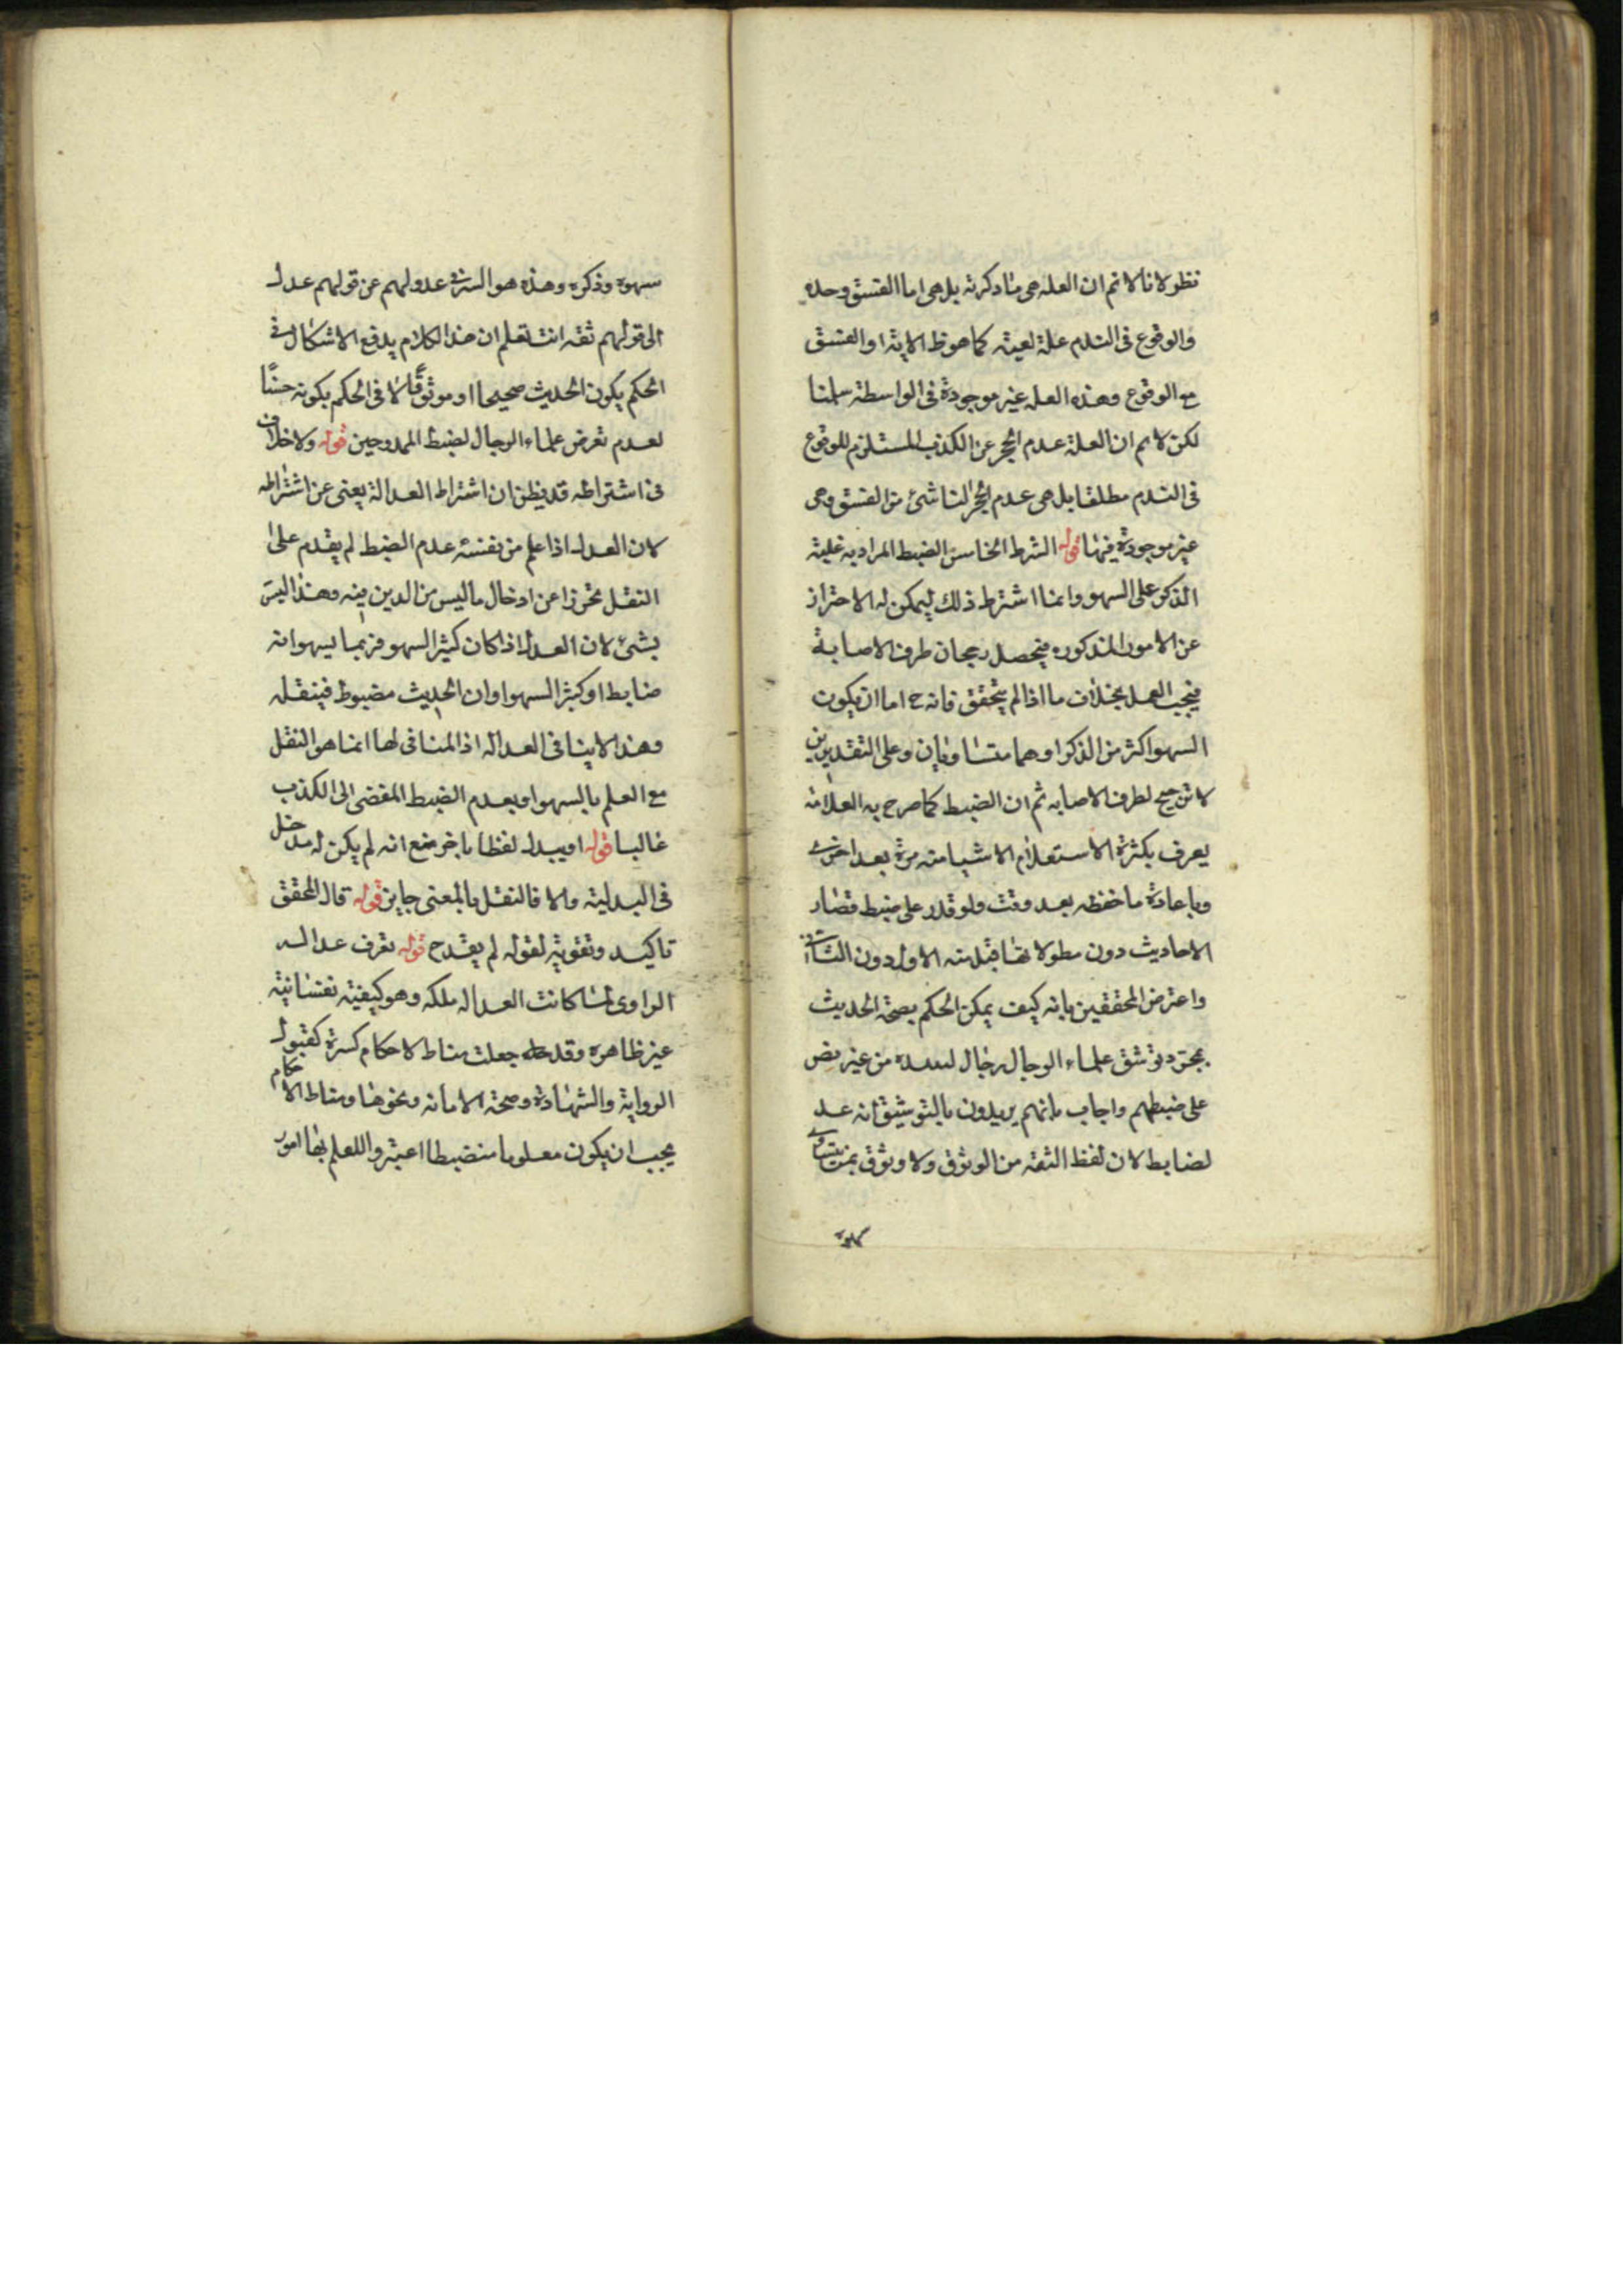 نظر لانا لانم ان العله هى ما ذكرته بل هى اما الفسق وحده
والوقوع فى الندم علة لعينه كما هو ظ الاية او الفسق
مع الوقوع وهذه العله غير موجودة فى الواسطة سلمنا
لكن لانم ان العلة عدم الحجر عن الكذب المستلزم للوقوع
فى الندم مطلقا بل هى عدم الحجر الناشئ من الفسق وهى
غير موجودة فيها قوله الشرط الخامس الضبط المراد به غلبة
الذكر على السهو وانما اشترط ذلك ليمكن له الاحتراز
عن الامور المذكوره فيحصل رجحان طرف الاصابة
فيجب العمل بخلاف ما اذا لم يتحقق فانه ح اما ان يكون
السهو اكثر من الذكر او هما متساويان وعلى التقديرين
لا ترجيح لطرف الاصابه ثم ان الضبط كما صرح به العلامة
يعرف بكثرة الاستعلام الاشيا منه مرة بعد اخرى
وباعادة ما حفظه بعد وقت ولو قدر على ضبط قصار
الاحاديث دون مطولاتها قبل منه الاول دون الثانى
واعترض المحققين بانه كيف يمكن الحكم بصحة الحديث
بمجرد توثيق علماء الرجال رجال لسنده من غير نص
على ضبطهم واجاب بانهم يريدون بالتوثيق انه عدل
لضابط لان لفظ الثقه من الوثوق ولا وثوق بمن يتساوى
سهوه
سهوه وذكره وهذه هو السر فى عدولهم عن قولهم عدل
الى قولهم ثقه انت تعلم ان هذا الكلام يدفع الاشكال فى
الحكم بكون الحديث صحيحا او موثوقا لا فى الحكم بكونه حسنا
لعدم تعرض علماء الرجال لضبط الممدوحين قوله ولا خلاف
فى اشتراطه قد يظن ان اشتراط العدالة يغنى عن اشتراطه
لان العدل اذا علم من نفسه عدم الضبط لم يقدم على
النقل تحرزا عن ادخال ما ليس من الدين فيه وهذا ليس
بشئ لان العدل اذا كان كثير السهو فربما يسهو انه
ضابط او كثير السهو او ان الحديث مضبوط فينقله
وهذا لا ينافى العداله اذ المنافى لها انما هو النقل
مع العلم بالسهو او بعدم الضبط المفضى الى الكذب
غالبا قوله او يبدل لفظا باخر منع انه لم يكن له مدخل
فى البدلية والا فالنقل بالمعنى جايز قوله قال المحقق
تاكيد وتقوية لقوله لم يقدح قوله تعرف عدالة
الراوى لما كانت العداله ملكه وهو كيفية نفسانية
غير ظاهره وقد جعلت مناط لاحكام كثيرة كقبول
الرواية والشهادة وصحة الامامه ونحوها ومناط الاحكام
يجب ان يكون معلوما منضبطا اعتبروا للعلم بها امور